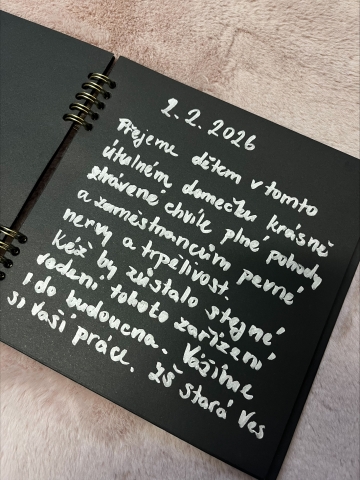 2.2.2026
Přejeme dětem v tomto
útulném domečku krásně
strávené chvíle plné pohody
a zaměstnancům pevné
nervy a trpělivost.
Kéž by zůstalo stejné
vedení tohoto zařízení
i do budoucna. Vážíme
si Vaší práce. ZŠ Stará Ves